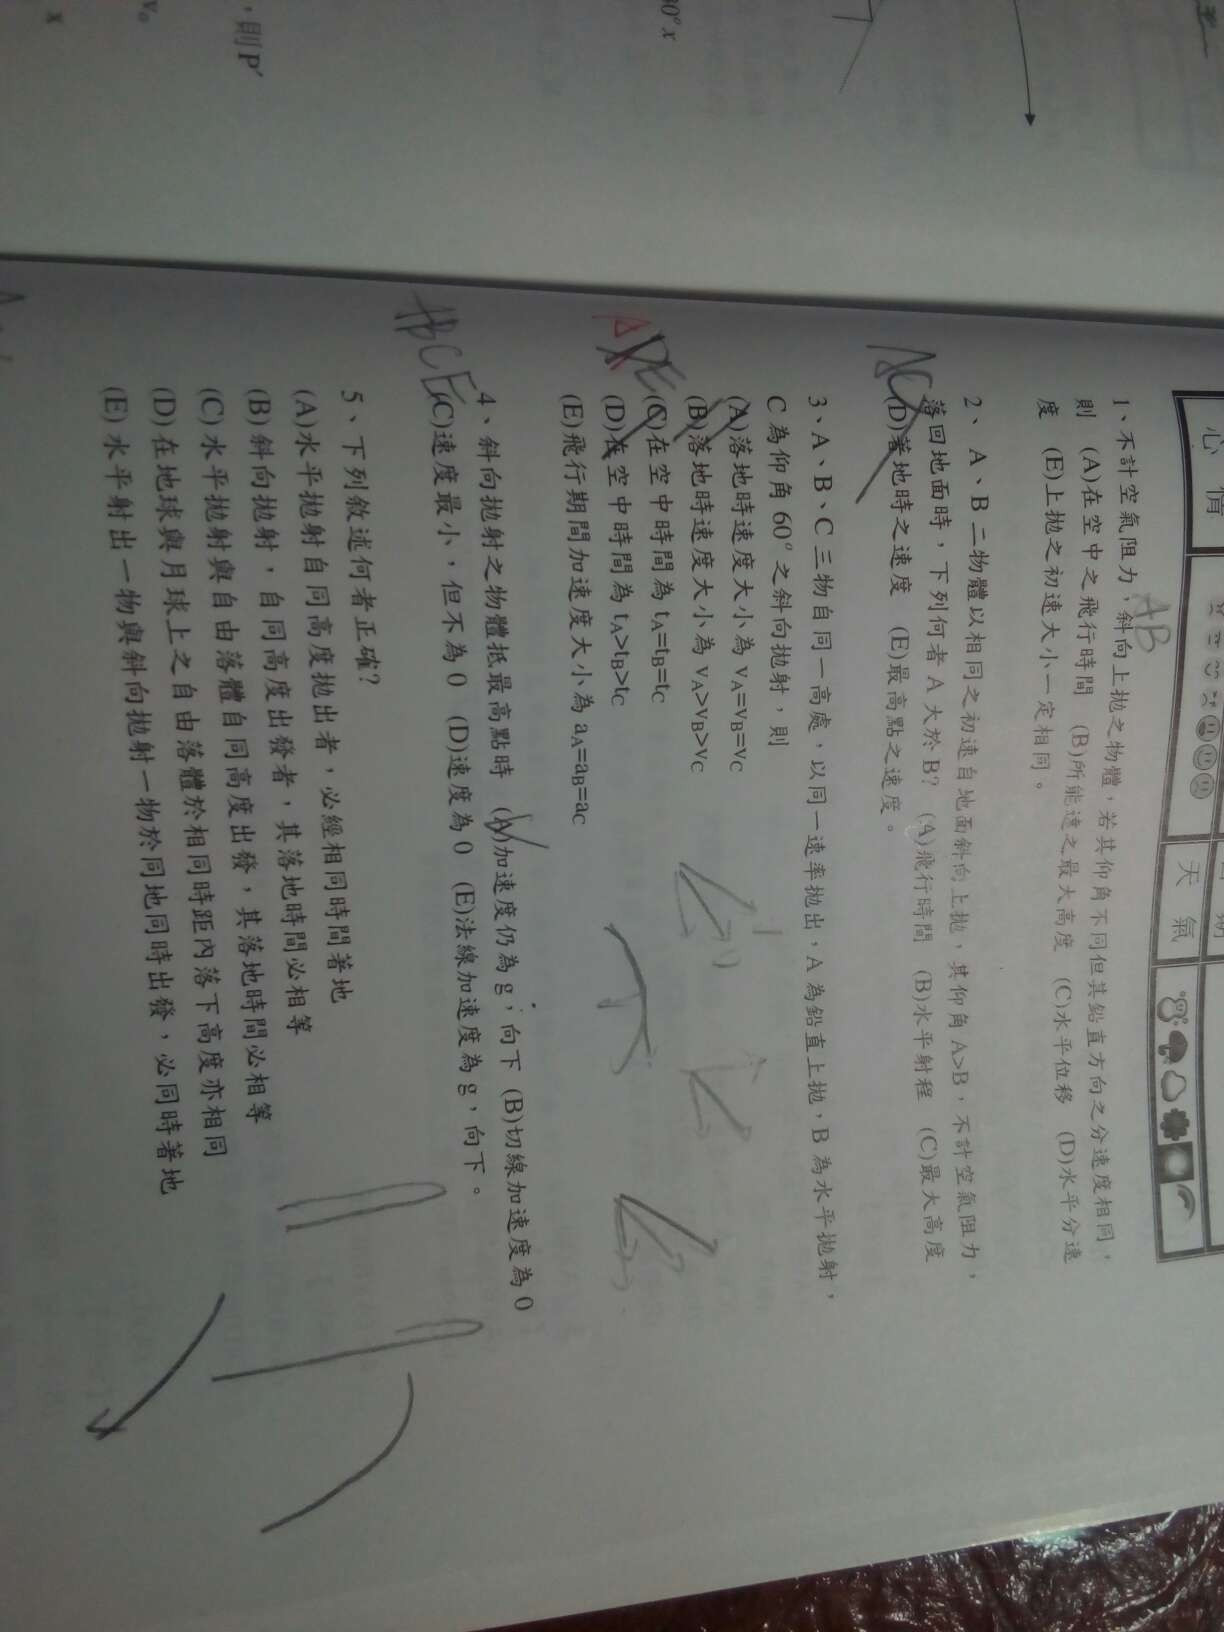 心情
天氣
1、不計空氣阻力，斜向上拋之物體，若其仰角不同但其鉛直方向之分速度相同，
則 (A)在空中之飛行時間 (B)所能達之最大高度 (C)水平位移 (D)水平分速
度 (E)上拋之初速大小一定相同。
AB
2、A、B二物體以相同之初速自地面斜向上拋，其仰角A>B，不計空氣阻力，
落回地面時，下列何者A大於B? (A)飛行時間 (B)水平射程 (C)最大高度
(D)著地時之速度 (E)最高點之速度。
AC
3、A、B、C三物自同一高處，以同一速率拋出，A為鉛直上拋，B為水平拋射，
C為仰角60°之斜向拋射，則
(A)落地時速度大小為vA=vB=vC
(B)落地時速度大小為vA>vB>vC
(C)在空中時間為tA=tB=tC
(D)在空中時間為tA>tB>tC
(E)飛行期間加速度大小為aA=aB=aC
4、斜向拋射之物體抵最高點時 (A)加速度仍為g，向下 (B)切線加速度為0
(C)速度最小，但不為0 (D)速度為0 (E)法線加速度為g，向下。
ABCE
5、下列敘述何者正確?
(A)水平拋射自同高度拋出者，必經相同時間著地
(B)斜向拋射，自同高度出發者，其落地時間必相等
(C)水平拋射與自由落體自同高度出發，其落地時間必相等
(D)在地球與月球上之自由落體於相同時距內落下高度亦相同
(E)水平射出一物與斜向拋射一物於同地同時出發，必同時著地
，則P'
v₀
x